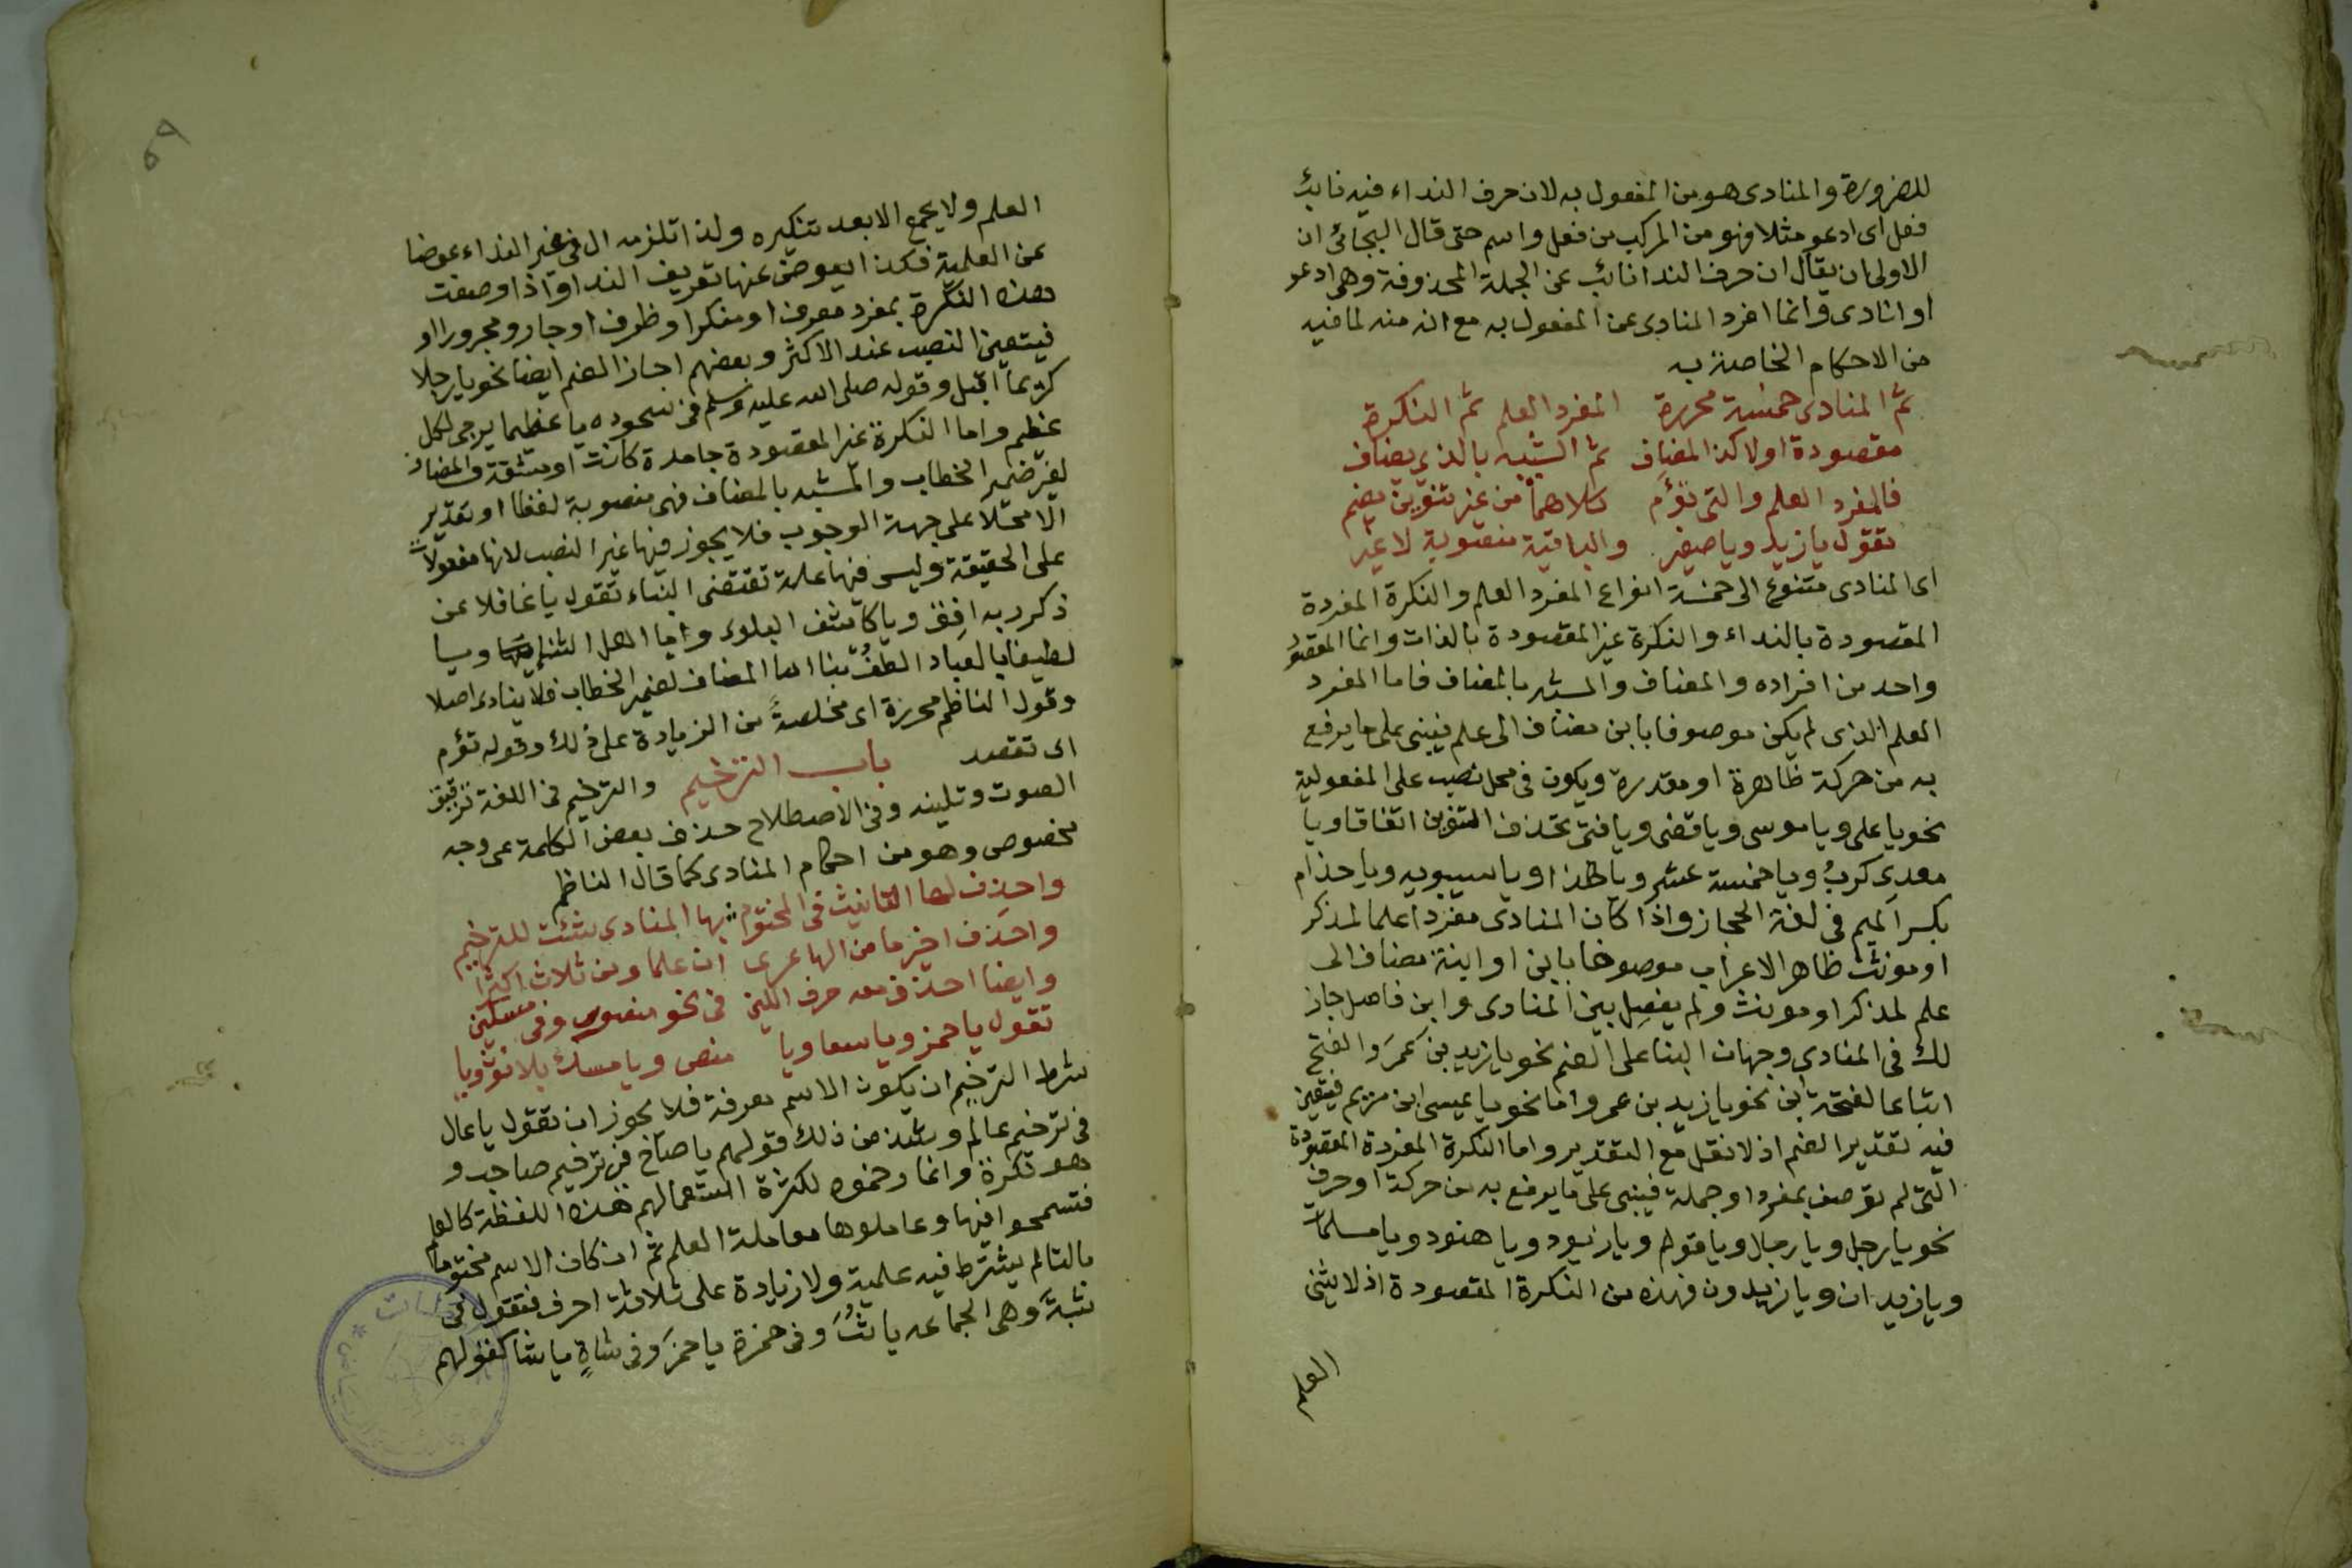 للضرورة والمنادى هو من المفعول به لان حرف النداء فيه نائب
فعل اى ادعو مثلا فهو من المركب من فعل واسم حتى قال البجائى ان
الاولى ان يقال ان حرف الندا نائب عن الجملة المحذوفة وهى ادعو
او انادى وانما افرد المنادى عن المفعول به مع انه منه لما فيه
من الاحكام الخاصة به
ثم المنادى خمسة محررة المفرد العلم ثم النكرة
مقصودة اولا كذا المضاف ثم الشبيه بالذى يضاف
فالمفرد العلم والتى تؤم كلاهما من غير تنوين يضم
تقول يا زيد ويا صغير والباقية منصوبة لا غير
اى المنادى متنوع الى خمسة انواع المفرد العلم والنكرة المفردة
المقصودة بالنداء والنكرة غير المقصودة بالذات وانما المقصود
واحد من افراده والمضاف والمشبه بالمضاف فاما المفرد
العلم الذى لم يكن موصوفا بابن مضاف الى علم فيبنى على ما يرفع
به من حركة ظاهرة او مقدرة ويكون فى محل نصب على المفعولية
نحو يا على ويا موسى ويا قضى ويا فتى بحذف التنوين اتفاقا ويا
معدى كرب ويا خمسة عشر ويا هذا ويا سيبويه ويا حذام
بكسر الميم فى لغة الحجاز واذا كان المنادى مفردا علما لمذكر
او مونث ظاهر الاعراب موصوفا بابن او ابنة مضاف الى
علم لمذكر او مونث ولم يفصل بين المنادى وابن فاصل جاز
لك فى المنادى وجهان البنا على الضم نحو يا زيد بن عمر والفتح
اتباعا لفتحة ابن نحو يا زيد بن عمرو اما نحو يا عيسى ابن مريم فيتعين
فيه تقدير الضم اذ لا نقل مع التقدير واما النكرة المفردة المقصودة
التى لم توصف بمفرد او جملة فيبنى على ما يرفع به من حركة او حرف
نحو يا رجل ويا رجال ويا قوم ويا زيود ويا هنود ويا مسلمات
ويا زيدان ويا زيدون فهذه من النكرة المقصودة اذ لا يثنى
العلم
٥٩
العلم ولا يجمع الا بعد تنكيره ولذا تلزمه ال فى غير النداء عوضا
عن العلمية فكذا يعوض عنها تعريف الندا واذا وصفت
هذه النكرة بمفرد معرف او منكر او ظرف او جار ومجرور او
فيتعين النصب عند الاكثر وبعضهم اجاز الضم ايضا نحو يا رجلا
كريما اقبل وقوله صلى الله عليه وسلم فى سجوده يا عظيما يرجى لكل
عظيم واما النكرة غير المقصودة جامدة كانت او مشتقة والمضاف
لغير ضمير الخطاب والمشبه بالمضاف فهى منصوبة لفظا او تقديرا
لا محلا على جهة الوجوب فلا يجوز فيها غير النصب لانها مفعولات
على الحقيقة وليس فيها علة تقتضى البناء تقول يا غافلا عن
ذكر ربه افق ويا كاشف البلوى ويا اهل الثنا ويا
لطيفا بالعباد الطف بنا اما المضاف لضمير الخطاب فلا ينادى اصلا
وقول الناظم محررة اى مخلصة من الزيادة على ذلك وقوله تؤم
اى تقصد باب الترخيم والترخيم فى اللغة ترقيق
الصوت وتليينه وفى الاصطلاح حذف بعض الكلمة على وجه
مخصوص وهو من احكام المنادى كما قال الناظم
واحذف لها التانيث فى المختوم بها المنادى شئت للترخيم
واحذف اخير ما من الها عرى ان علما ومن ثلاث اكثرا
وايضا احذف معه حرف اللين فى نحو منصور وفى مسكين
تقول يا حمز ويا سعا ويا منص ويا مسك بلا نو رويا
شرط الترخيم ان يكون الاسم معرفة فلا يجوز ان تقول يا عال
فى ترخيم عالم وشذ من ذلك قولهم يا صاح فى ترخيم صاحب و
هو نكرة وانما رخموه لكثرة استعمالهم هذه اللفظة كالعلم
فتسمحوا فيها وعاملوها معاملة العلم ثم ان كان الاسم مختوما
بالتا لم يشترط فيه علمية ولا زيادة على ثلاثة احرف فتقول فى
ثبة وهى الجماعه يا ثب وفى حمزة يا حمز وفى شاة يا شا كقولهم